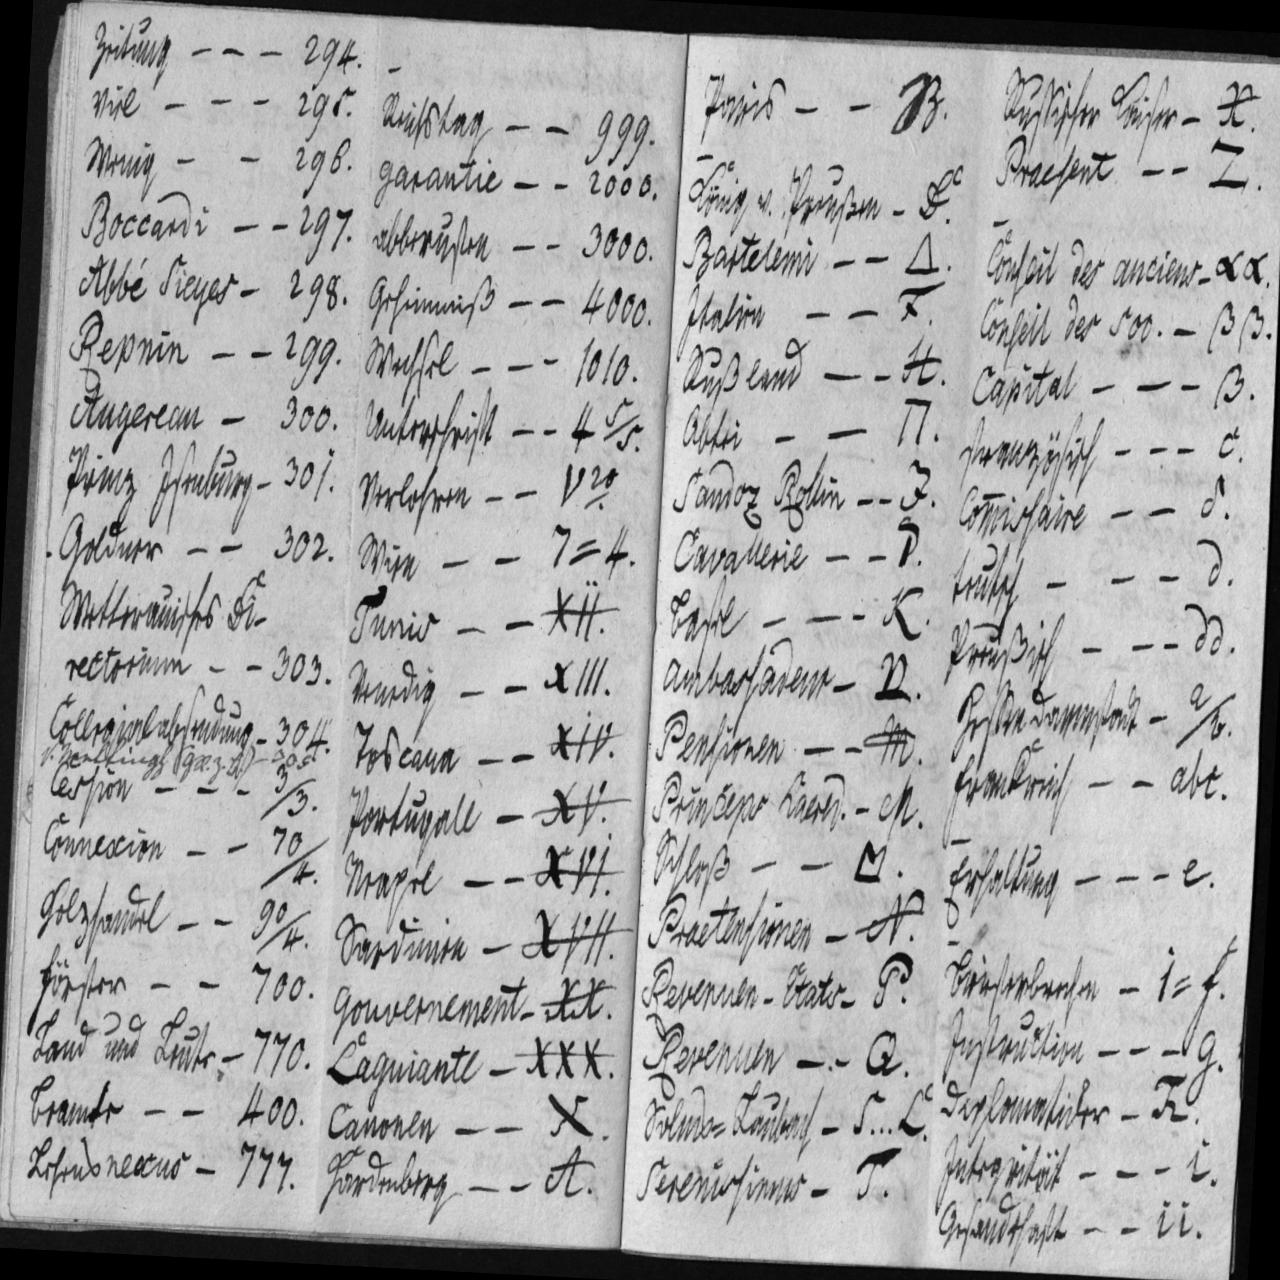 Zeitung - - - 294.
Viel - - - 295.
Wenig - - 296.
Boccardi - - 297.
Abbé Sieyes - 298.
Repnin - - 299.
Augereau - 300.
Prinz Isenburg - 301.
Goldner - - 302.
Wetterauisches Di-
rectorium - - 303.
Collegialabsendung - 304.
Cession - - - 3/3.
Connexion - - 70/4.
Holzhandel - - 90/4.
Förster - - 700.
Land und Leute - 770.
Beamte - - 400.
Lehensnexus - 777.
Reichstag - - 999.
garantie - - 2000.
abberufen - - 3000.
Geheimniß - - 4000.
Wechsel - - - 1010.
Unterschrift - - 4 5/5.
Verlohren - - V 20.
Wien - - 7=4.
Tunis - - XII.
Venedig - - XIII.
Toscana - - XIV.
Portugall - - XV.
Neapel - - XVI.
Sardinien - XVII.
Gouvernement - XX.
Laquiante - XXX.
Canonen - - X.
Hardenberg - - A.
Paris - - B.
König v. Preußen - D.
Bartelemi - - Δ.
Italien - - F.
Rußland - - H.
Abtei - - Π.
Sandoz Rollin - - J.
Cavallerie - -
Basel - - - K.
Ambassadeur -
Pensionen - - M.
Princeps Haered. - M.
Schloß - -
Praetensionen - N.
Revenuen-Etats - P.
Revenuen - - Q.
Solms=Laubach - S...L.
Serenissimus - T.
Russischer Kaiser - X.
Praesent - - Z.
Conseil des anciens - αα.
Conseil des 500. - ββ.
Capital - - - β.
französisch - - - c.
Comissaire - - δ.
teutsch - - - d.
Preußisch - - - dd.
Hessendarmstadt - a/b.
Frankreich - - abc.
Erhaltung - - - e.
- 1=f.
Instruction - - - g.
Diplomatiker -
Integrität - - - i.
Gesandschaft - - ii.